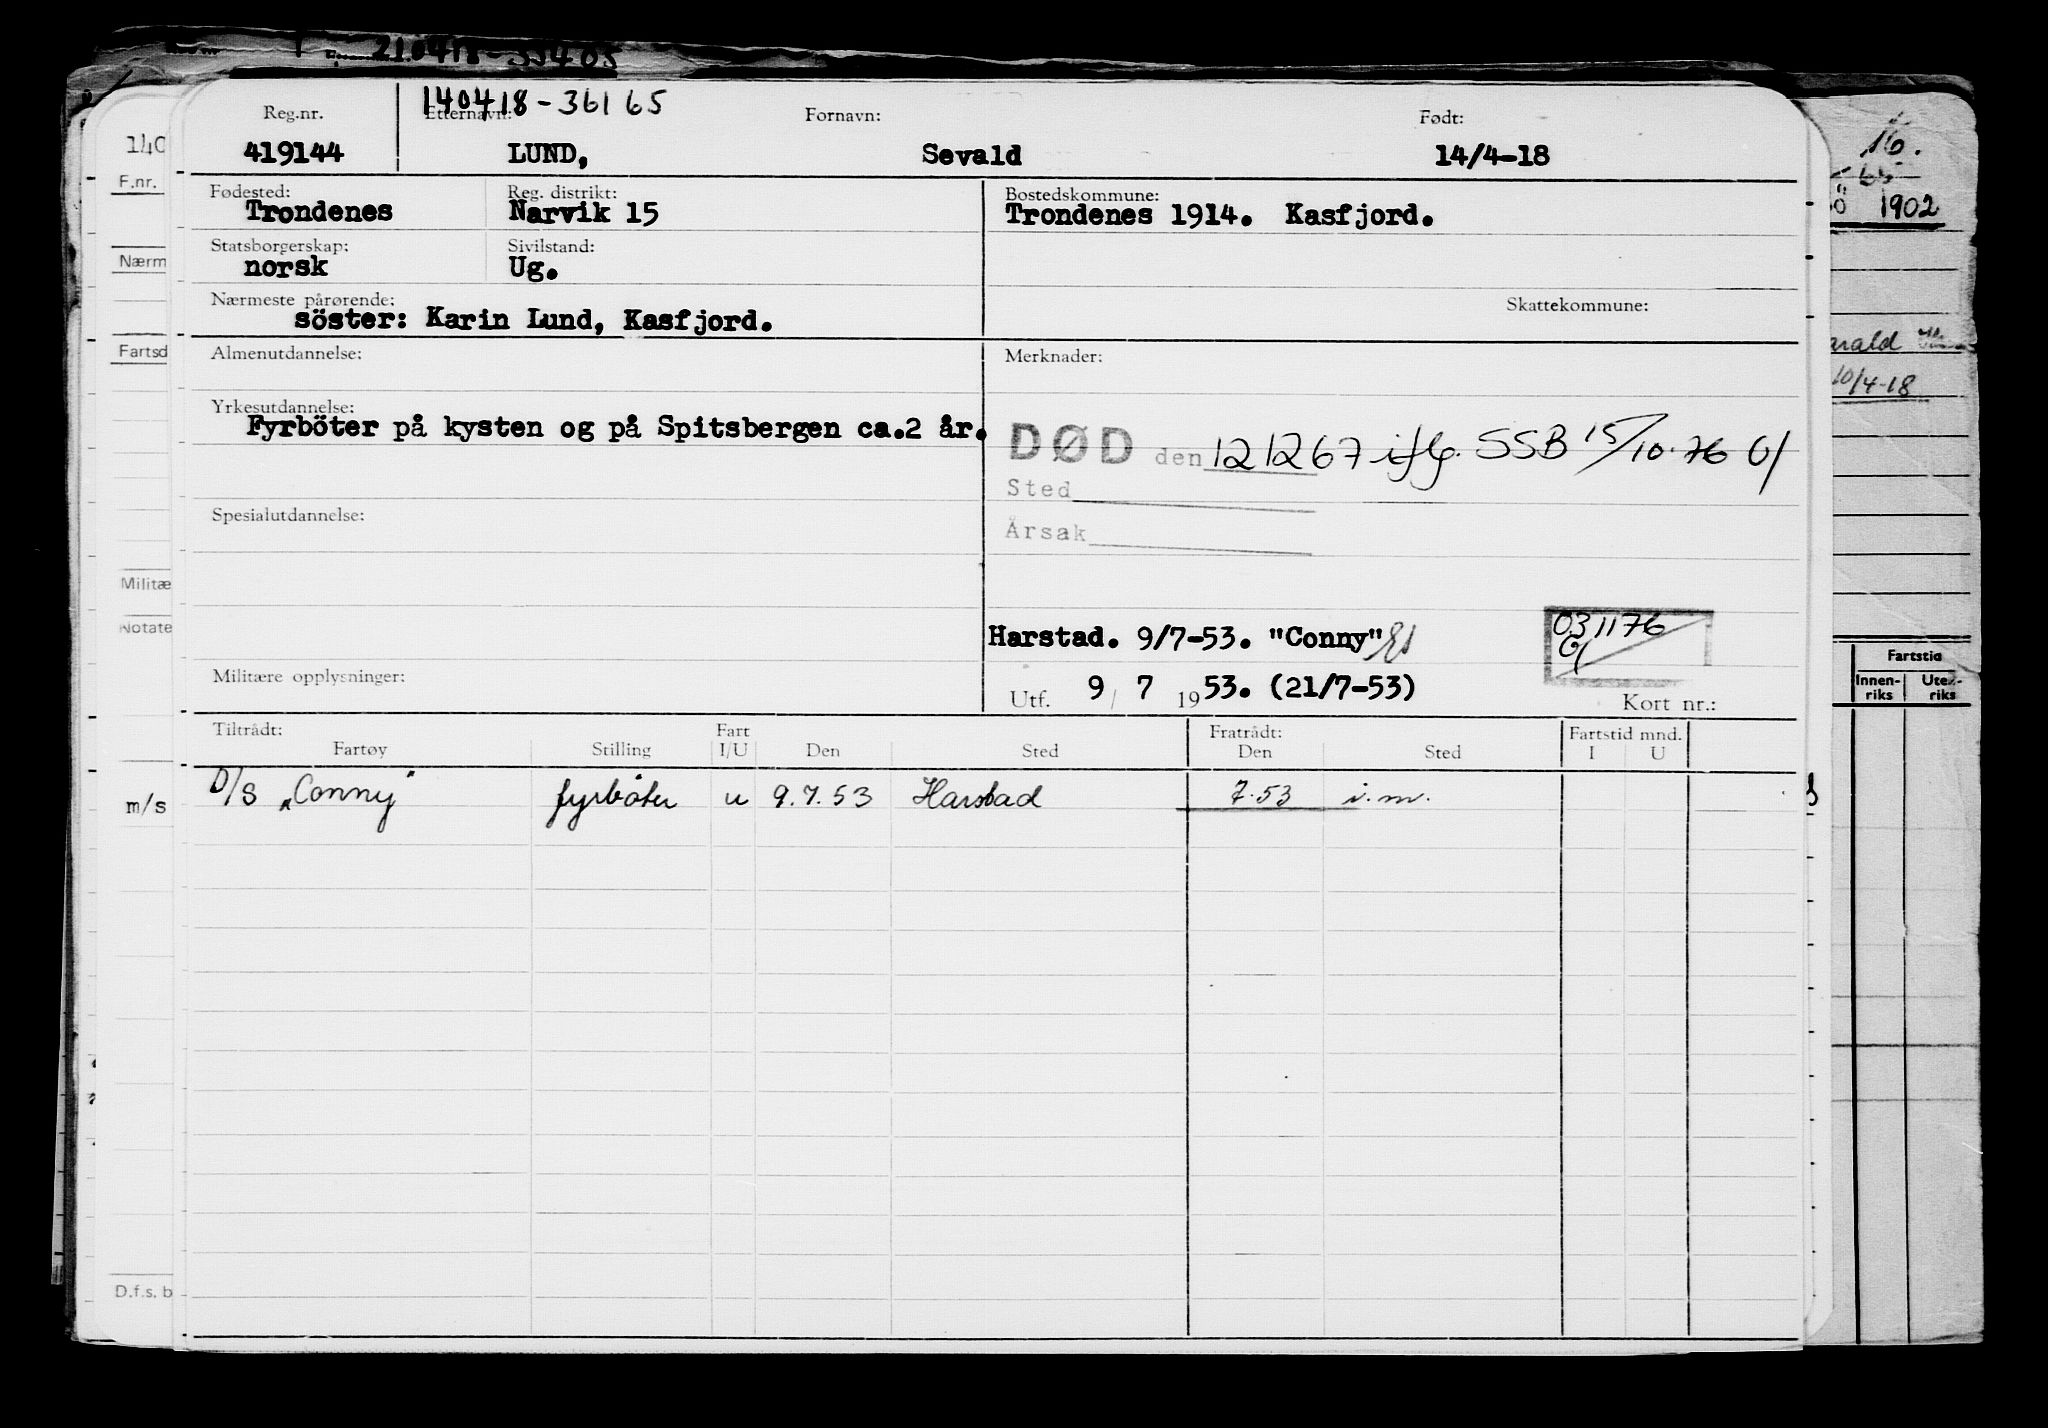 210418-33405
140418-36165
Reg.nr. Etternavn: Fornavn: Født:
419144 LUND, Sevald 14/4-18
Fødested: Reg. distrikt: Bostedskommune:
Trondenes Narvik 15 Trondenes 1914. Kasfjord.
Statsborgerskap: Sivilstand:
norsk Ug.
Nærmeste pårørende: Skattekommune:
söster: Karin Lund, Kasfjord.
Almenutdannelse: Merknader:
Yrkesutdannelse:
Fyrböter på kysten og på Spitsbergen ca.2 år.
DØD den 121267 iflg. SSB 15/10-76
Sted
Spesialutdannelse:
Årsak
Harstad. 9/7-53. "Conny"
031176
Militære opplysninger:
Utf. 9 / 7 1953. (21/7-53)
Kort nr.:
Tiltrådt: Fart Fratrådt: Fartstid mnd.
Fartøy Stilling I/U Den Sted Den Sted I U
D/S „Conny" fyrbøter u 9.7.53 Harstad 7.53 i.m.
140
F.nr.
Nærm
Fartsd
Militæ
Notate
m/s
D.f.s. b
16.
1902
arald
10/4-18
Fartstid
Innen-riks Uten-riks